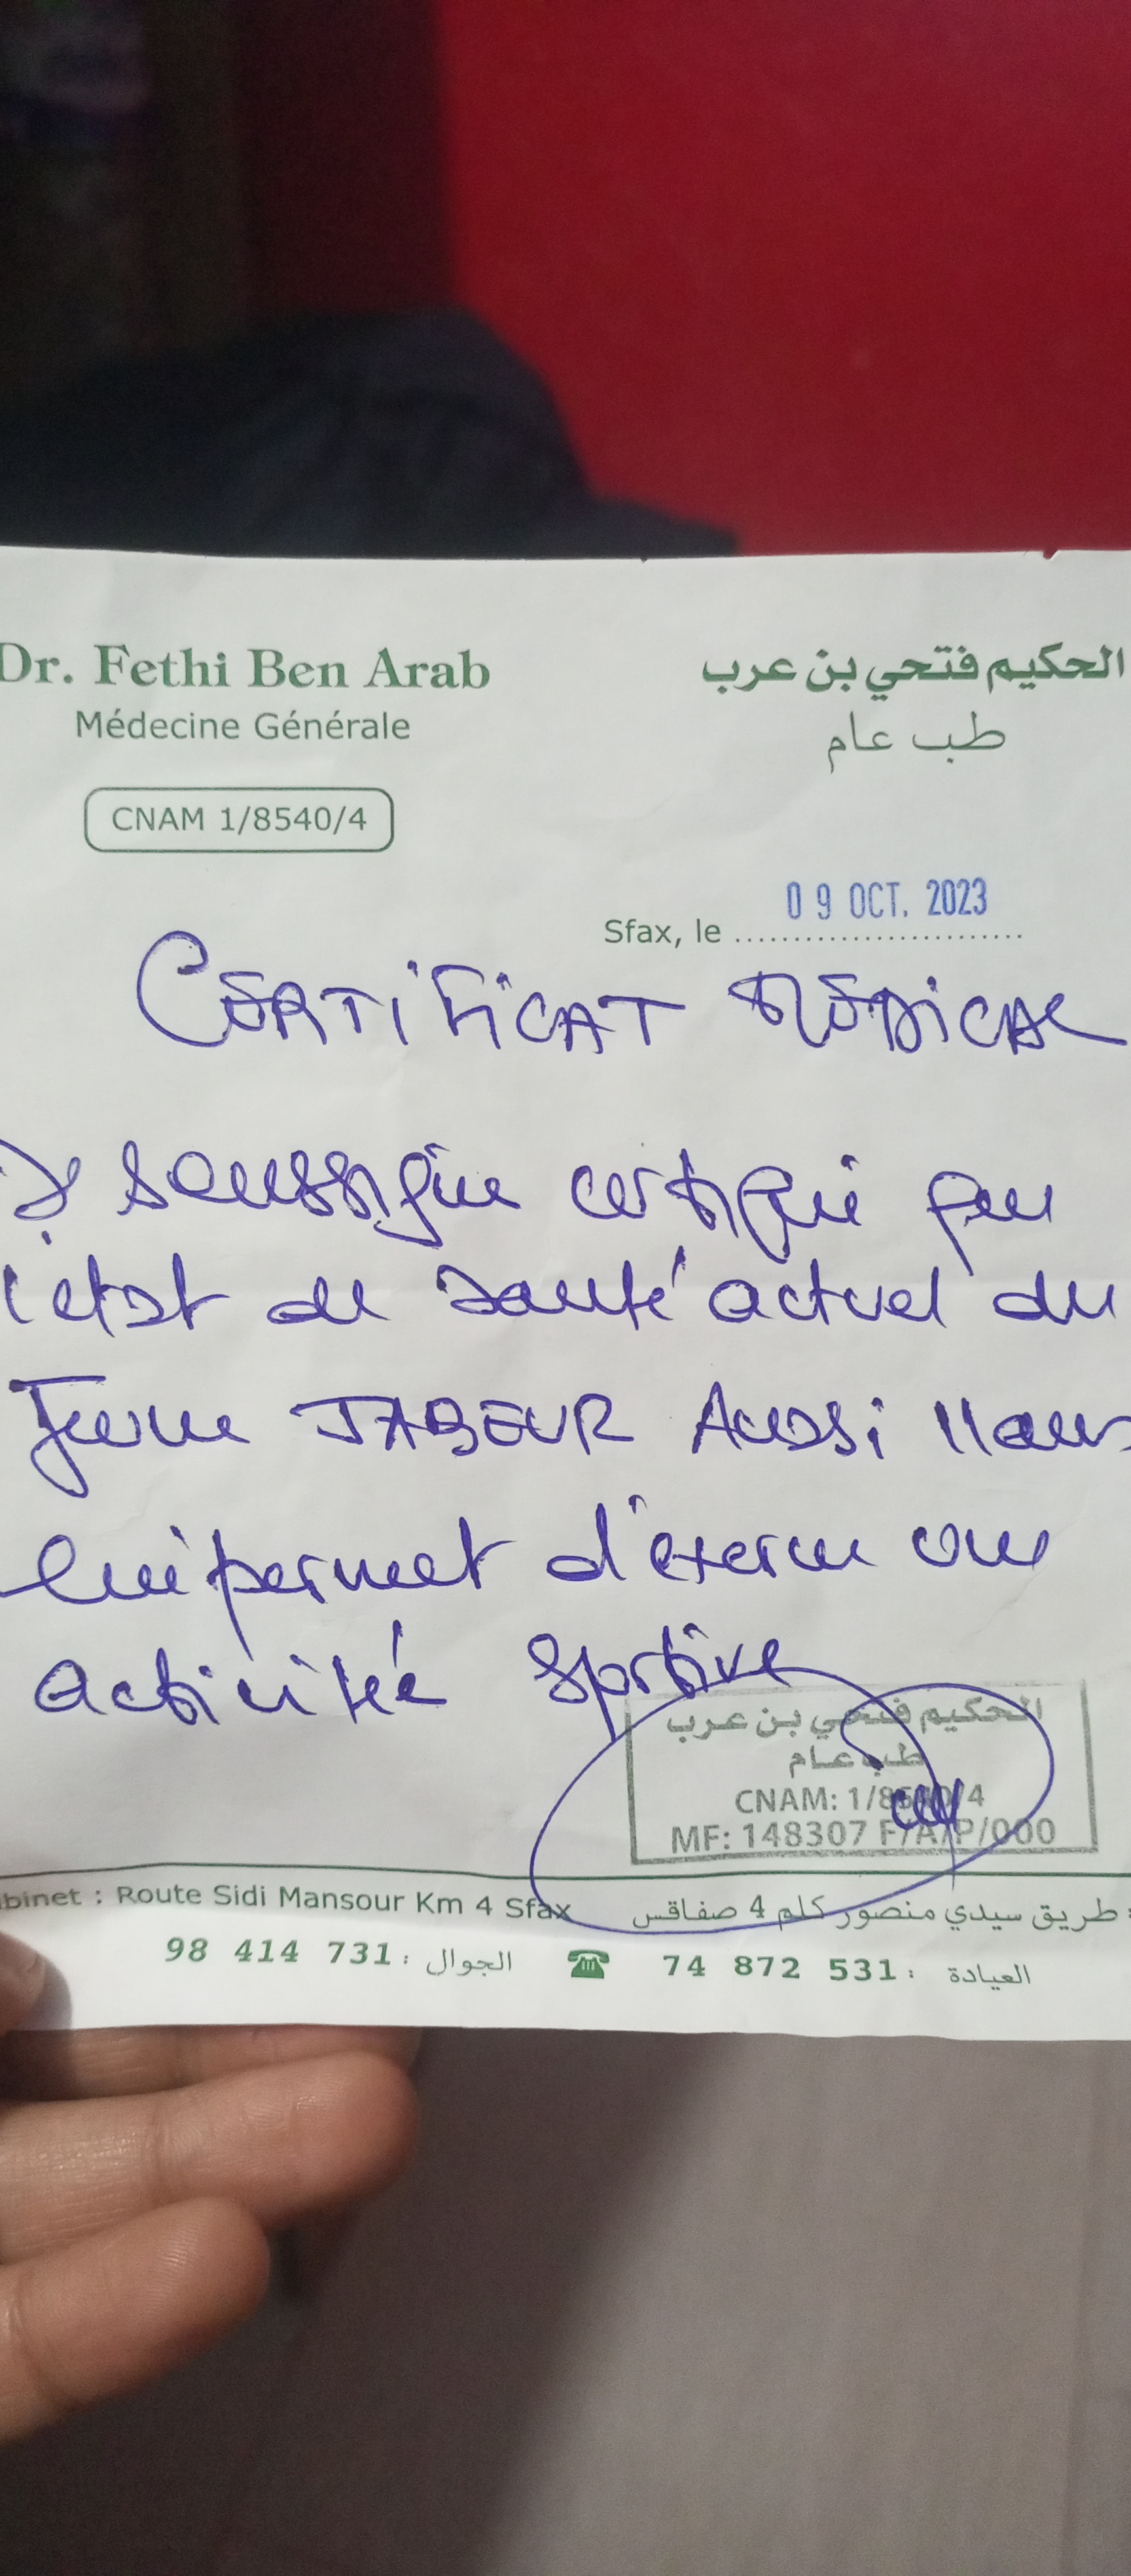 Dr. Fethi Ben Arab
الحكيم فتحي بن عرب
Médecine Générale
طب عام
CNAM 1/8540/4
Sfax, le 09 OCT. 2023
CERTIFICAT MÉDICAL
Je soussigné certifie que
l'etat de santé actuel du
Jeune JABEUR
lui permet d'exercer une
activitée sportive
الحكيم فتحي بن عرب
طب عام
CNAM: 1/8540/4
MF: 148307 F/A/P/000
binet : Route Sidi Mansour Km 4 Sfax
طريق سيدي منصور كلم 4 صفاقس
98 414 731 : الجوال
74 872 531 : العيادة